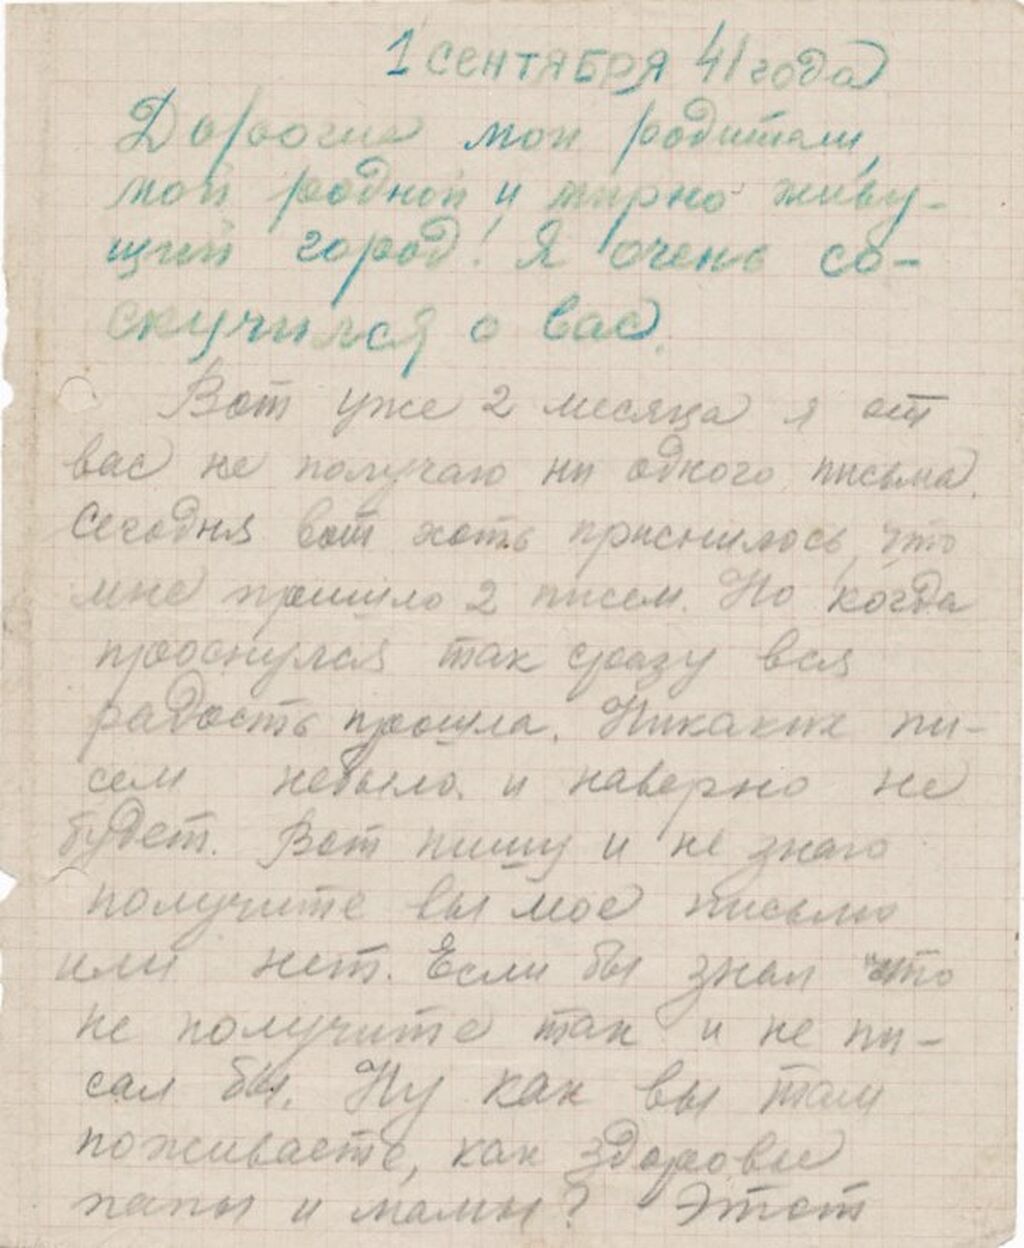 1 СЕНТЯБРЯ 41 года
Дорогие мои родители,
мой родной и мирно живу-
щий город! Я очень со-
скучился о вас.
Вот уже 2 месяца я от
вас не получаю ни одного письма.
Сегодня вот хоть приснилось, что
мне пришло 2 писем. Но когда
проснулся так сразу вся
радость прошла. Никаких пи-
сем небыло и наверно не
будет. Вот пишу и не знаю
получите вы мое письмо
или нет. Если бы знал что
не получите так и не пи-
сал бы. Ну как вы там
поживаете, как здоровье
папы и мамы? Этот